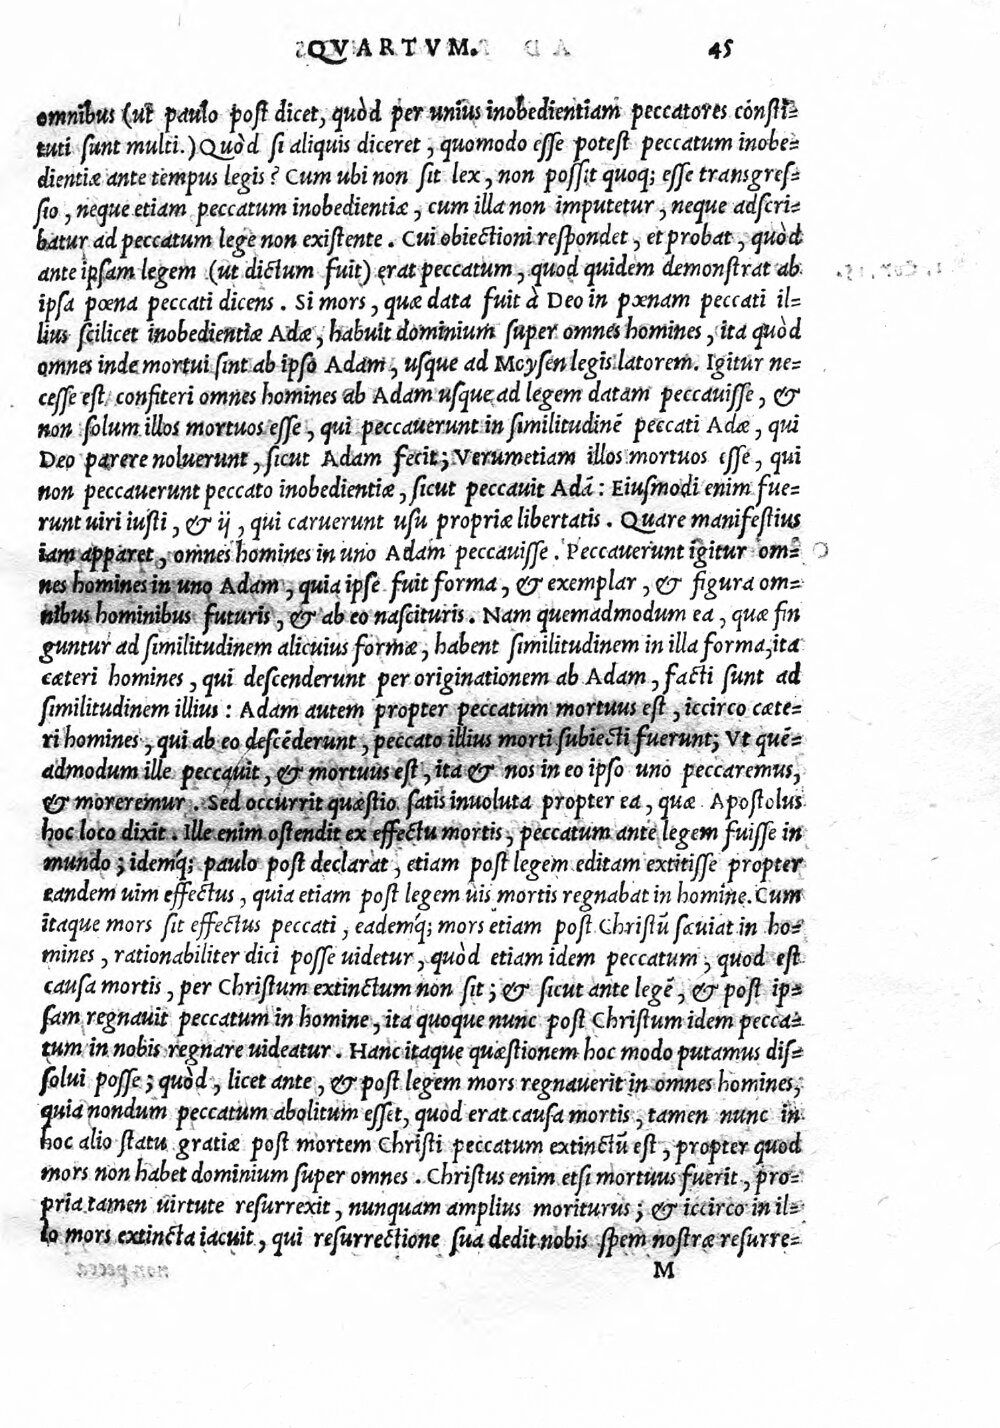 QVARTVM. 45
omnibus (ut paulo post dicet, quòd per unius inobedientiam peccatores consti=
tuti sunt multi.) Quòd si aliquis diceret, quomodo esse potest peccatum inobe=
dientiæ ante tempus legis? Cum ubi non sit lex, non possit quoq; esse transgres=
sio, neque etiam peccatum inobedientiæ, cum illa non imputetur, neque adscri=
batur ad peccatum lege non existente. Cui obiectioni respondet, et probat, quòd
ante ipsam legem (ut dictum fuit) erat peccatum, quod quidem demonstrat ab
ipsa pœna peccati dicens. Si mors, quæ data fuit à Deo in pœnam peccati il=
lius scilicet inobedientiæ Adæ, habuit dominium super omnes homines, ita quòd
omnes inde mortui sint ab ipso Adam, usque ad Moysen legis latorem. Igitur ne=
cesse est confiteri omnes homines ab Adam usque ad legem datam peccauisse, &
non solum illos mortuos esse, qui peccauerunt in similitudinē peccati Adæ, qui
Deo parere noluerunt, sicut Adam fecit; Verumetiam illos mortuos esse, qui
non peccauerunt peccato inobedientiæ, sicut peccauit Adā: Eiusmodi enim fue=
runt uiri iusti, & ij, qui caruerunt usu propriæ libertatis. Quare manifestius
iam apparet, omnes homines in uno Adam peccauisse. Peccauerunt igitur om=
nes homines in uno Adam, quia ipse fuit forma, & exemplar, & figura om=
nibus hominibus futuris, & ab eo nascituris. Nam quemadmodum ea, quæ fin
guntur ad similitudinem alicuius formæ, habent similitudinem in illa forma, ita
cæteri homines, qui descenderunt per originationem ab Adam, facti sunt ad
similitudinem illius: Adam autem propter peccatum mortuus est, iccirco cæte=
ri homines, qui ab eo descēderunt, peccato illius morti subiecti fuerunt; Vt quē=
admodum ille peccauit, & mortuus est, ita & nos in eo ipso uno peccaremus,
& moreremur. Sed occurrit quæstio satis inuoluta propter ea, quæ Apostolus
hoc loco dixit. Ille enim ostendit ex effectu mortis, peccatum ante legem fuisse in
mundo; idemq́; paulo post declarat, etiam post legem editam extitisse propter
eandem uim effectus, quia etiam post legem uis mortis regnabat in homine. Cum
itaque mors sit effectus peccati, eademq́; mors etiam post Christū sæuiat in ho=
mines, rationabiliter dici posse uidetur, quòd etiam idem peccatum, quod est
causa mortis, per Christum extinctum non sit; & sicut ante legē, & post ip=
sam regnauit peccatum in homine, ita quoque nunc post Christum idem pecca=
tum in nobis regnare uideatur. Hanc itaque quæstionem hoc modo putamus dis=
solui posse; quòd, licet ante, & post legem mors regnauerit in omnes homines,
quia nondum peccatum abolitum esset, quod erat causa mortis, tamen nunc in
hoc alio statu gratiæ post mortem Christi peccatum extinctū est, propter quod
mors non habet dominium super omnes. Christus enim etsi mortuus fuerit, pro=
pria tamen uirtute resurrexit, nunquam amplius moriturus; & iccirco in il=
lo mors extincta iacuit, qui resurrectione sua dedit nobis spem nostræ resurre=
M